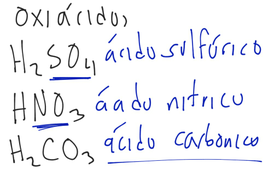 Oxiácidos
H₂SO₄ ácido sulfúrico
HNO₃ ácido nitrico
H₂CO₃ ácido carbonico